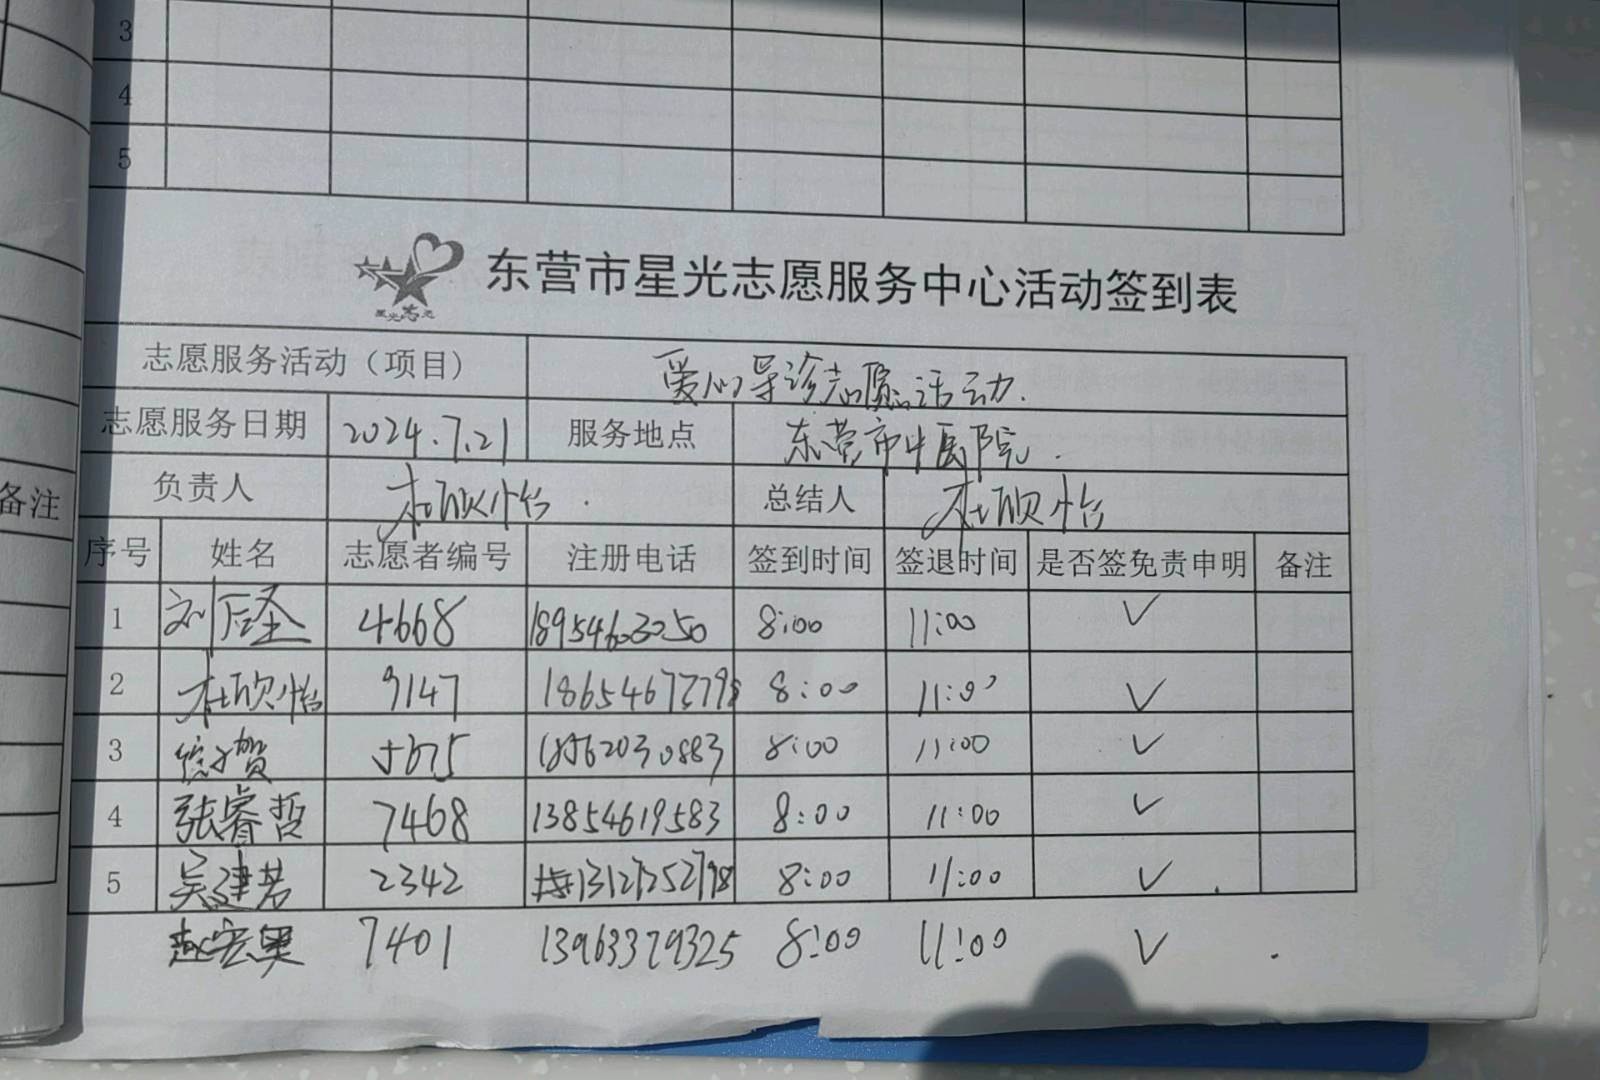 3
4
5
备注
星光志愿
东营市星光志愿服务中心活动签到表
志愿服务活动（项目） 爱心导诊志愿活动.
志愿服务日期 2024.7.21 服务地点 东营市中医院.
负责人 杜欣怡. 总结人 杜欣怡
序号 姓名 志愿者编号 注册电话 签到时间 签退时间 是否签免责申明 备注
1 刘 4668 18954603050 8:00 11:00 ✓
2 杜欣怡 9147 8:00 11:00 ✓
3 徐子贺 5675 18562030883 8:00 11:00 ✓
4 张睿哲 7468 13854619583 8:00 11:00 ✓
5 吴建芳 2342 8:00 11:00 ✓
赵宏 7401 13963379325 8:00 11:00 ✓